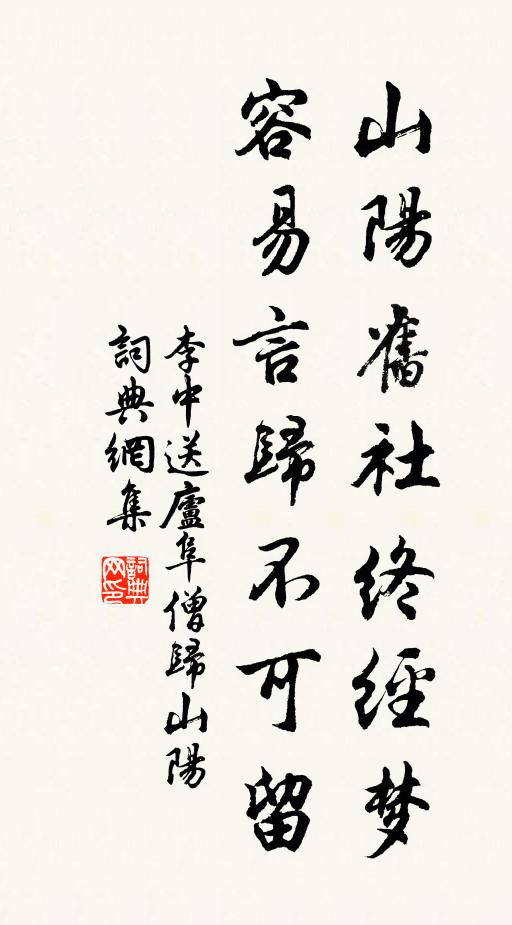 山陽舊社終經梦
容易言歸不可留
李中送廬阜僧歸山陽
詞典網集
詞典网印